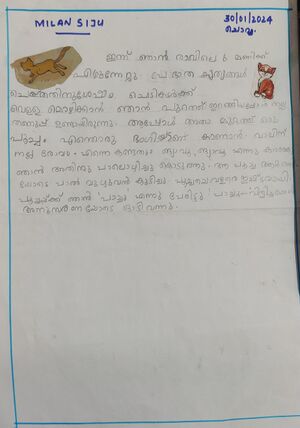 MILAN SIJU
30/01/2024
ചൊവ്വ
ഇന്ന് ഞാൻ രാവിലെ 6 മണിക്ക്
എഴുന്നേറ്റു. പ്രഭാത കൃത്യങ്ങൾ
ചെയ്തതിനുശേഷം ചെടികൾക്ക്
വെള്ളമൊഴിക്കാൻ ഞാൻ പുറത്ത് ഇറങ്ങിയപ്പോൾ നല്ല
തണുപ്പ് ഉണ്ടായിരുന്നു. അപ്പോൾ അതാ മുറ്റത്ത് ഒരു
പൂച്ച എന്തൊരു ഭംഗിയാണ് കാണാൻ വാലിന്
നല്ല രോമം. എന്നെ കണ്ടതും മ്യാവൂ, മ്യാവൂ എന്നു കരഞ്ഞു
ഞാൻ അതിനു പാലൊഴിച്ചു കൊടുത്തു. ആ പൂച്ച
യോടെ പാൽ മുഴുവൻ കുടിച്ചു. പൂച്ചയെ വളരെ ഇഷ്ടമായി
പൂച്ചയ്ക്ക് ഞാൻ പാച്ചു എന്നു പേരിട്ടു പാച്ചു
അനുസരണയോടെ ഓടി വന്നു.